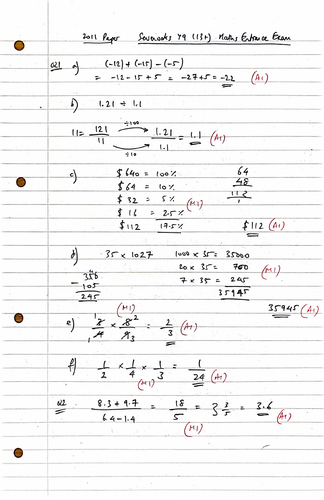 2011 Paper Sevenoaks Y9 (13+) Maths Entrance Exam
Q1 a) (-12) + (-15) - (-5)
= -12 - 15 + 5 = -27 + 5 = -22 (A1)
b) 1.21 ÷ 1.1
÷100
11 = 121/11 1.21/1.1 = 1.1 (A1)
÷10
c) $640 = 100% 64
$64 = 10% 48
$32 = 5% (M1) 112
$16 = 2.5% 1
$112 17.5% $112 (A1)
d) 35 × 1027 1000 × 35 = 35000
20 × 35 = 700 (M1)
- 350 7 × 35 = 245
105 35945
245 35945 (A1)
(M1)
e) = 2/3 (A1)
f) 1/2 × 1/4 × 1/3 = 1/24 (A1)
(M1)
Q2 8.3 + 9.7 / 6.4 - 1.4 = 18/5 = 3 3/5 = 3.6 (A1)
(M1)